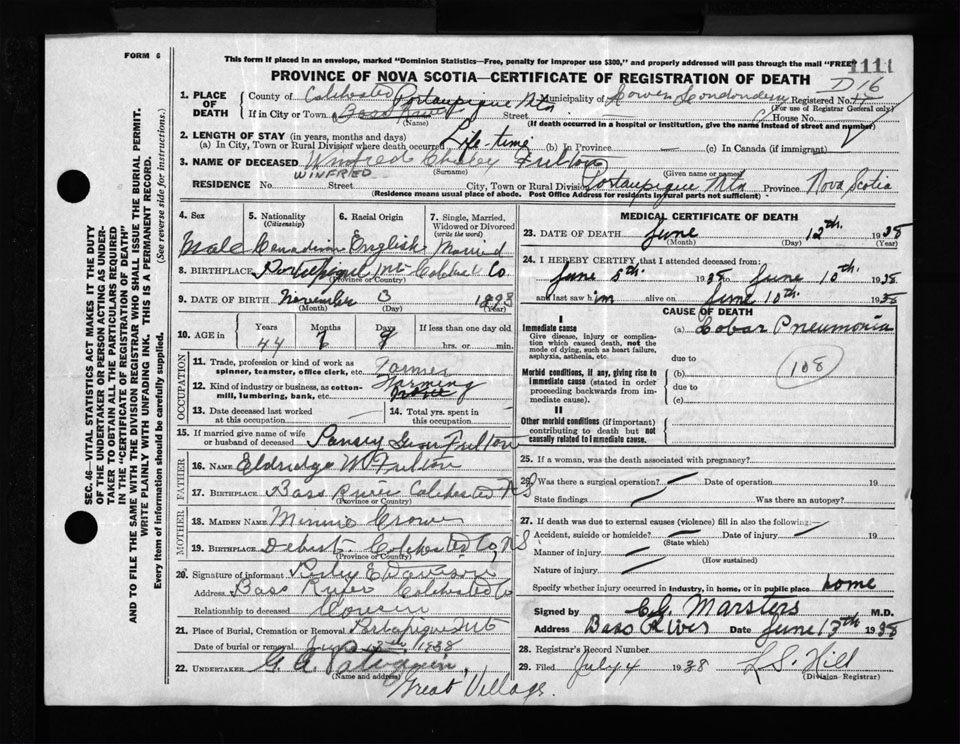 FORM 6
This form if placed in an envelope, marked "Dominion Statistics—Free, penalty for improper use $300," and properly addressed will pass through the mail "FREE"
1111
PROVINCE OF NOVA SCOTIA—CERTIFICATE OF REGISTRATION OF DEATH
D 76
1. PLACE OF DEATH County of Colchester Portaupique Mtn Municipality of Registered No.
(For use of Registrar General only)
If in City or Town Bass River Street House No.
(Name) (If death occurred in a hospital or institution, give the name instead of street and number)
2. LENGTH OF STAY (in years, months and days)
(a) In City, Town or Rural Division where death occurred Life-time (b) In Province — (c) In Canada (if immigrant) —
3. NAME OF DECEASED Winfred Fulton
WINFRIED (Surname) (Given name or names)
RESIDENCE No. Street City, Town or Rural Division Portaupique Mtn Province Nova Scotia
(Residence means usual place of abode. Post Office Address for Residents in rural parts not sufficient)
4. Sex 5. Nationality (Citizenship) 6. Racial Origin 7. Single, Married, Widowed or Divorced (write the word)
Male Canadian English Married
8. BIRTHPLACE Co.
(Province or Country)
9. DATE OF BIRTH November 3 1893
(Month) (Day) (Year)
10. AGE in Years Months Days If less than one day old
44 7 9 hrs. or min.
OCCUPATION
11. Trade, profession or kind of work as spinner, teamster, office clerk, etc. Farmer
12. Kind of industry or business, as cotton-mill, lumbering, bank, etc. Farming
13. Date deceased last worked at this occupation — 14. Total yrs. spent in this occupation
15. If married give name of wife or husband of deceased Pansy Fulton
FATHER
16. NAME Eldridge W Fulton
17. BIRTHPLACE Bass River Colchester NS
(Province or Country)
MOTHER
18. MAIDEN NAME Minnie Crowe
19. BIRTHPLACE Debert Colchester Co, N S
(Province or Country)
20. Signature of informant E Davison
Address Bass River Colchester Co
Relationship to deceased Cousin
21. Place of Burial, Cremation or Removal Portapique Mt
Date of burial or removal 1938
22. UNDERTAKER
(Name and address)
Great Village.
MEDICAL CERTIFICATE OF DEATH
23. DATE OF DEATH June 12th. 1938
(Month) (Day) (Year)
24. I HEREBY CERTIFY, that I attended deceased from:
June 5th. 1938 to June 10th. 1938
and last saw him alive on June 10th. 1938
CAUSE OF DEATH
I
Immediate cause (a) Lobar Pneumonia
Give disease, injury or complication which caused death, not the mode of dying, such as heart failure, asphyxia, asthenia, etc.
due to
108
Morbid conditions, if any, giving rise to immediate cause (stated in order proceeding backwards from immediate cause).
(b)
due to
(c)
II
Other morbid conditions (if important) contributing to death but not causally related to immediate cause.
25. If a woman, was the death associated with pregnancy?
26. Was there a surgical operation? Date of operation 19
State findings Was there an autopsy?
27. If death was due to external causes (violence) fill in also the following:
Accident, suicide or homicide? Date of injury 19
(State which)
Manner of injury
(How sustained)
Nature of injury
Specify whether injury occurred in industry, in home, or in public place home
Signed by C.G. Marsters M.D.
Address Bass River Date June 13th 1938
28. Registrar's Record Number
29. Filed July 4 1938 L.S. Hill
(Division Registrar)
SEC. 46—VITAL STATISTICS ACT MAKES IT THE DUTY
OF THE UNDERTAKER OR PERSON ACTING AS UNDER-
TAKER TO OBTAIN ALL THE PARTICULARS REQUIRED
IN THE "CERTIFICATE OF REGISTRATION OF DEATH"
AND TO FILE THE SAME WITH THE DIVISION REGISTRAR WHO SHALL ISSUE THE BURIAL PERMIT.
WRITE PLAINLY WITH UNFADING INK. THIS IS A PERMANENT RECORD.
Every item of information should be carefully supplied. (See reverse side for instructions.)